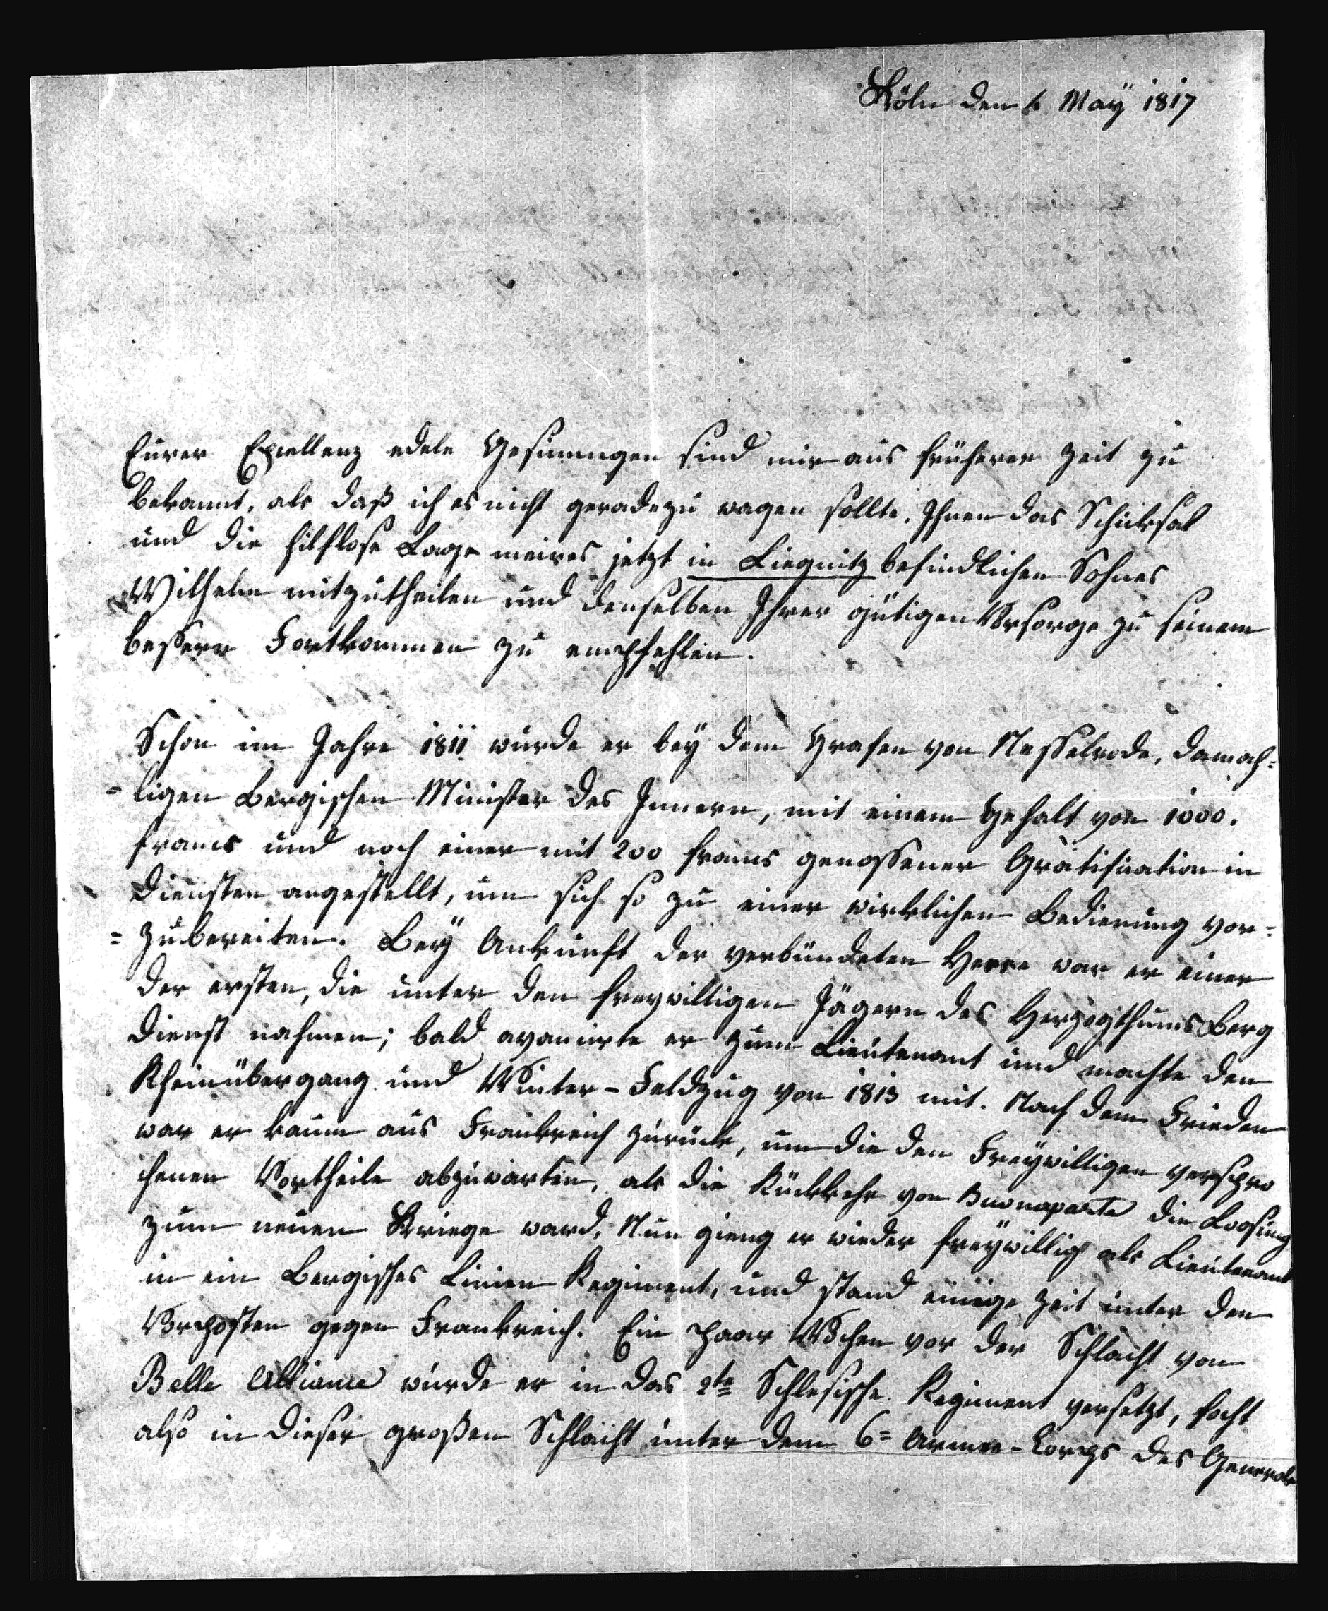 Köln den 6 Maÿ 1817
Eurer Excellenz edele Gesinnungen sind mir aus früherer Zeit zu
bekannt, als daß ich es nicht geradezu wagen sollte, Ihnen das Schicksal
und die hilflose Lage meines jetzt in Liegnitz befindlichen Sohnes
Wilhelm mitzutheilen und denselben Ihrer gütigen Vorsorge zu seinem
bessern Fortkommen zu empfehlen.
Schon im Jahre 1811 wurde er beÿ dem Grafen von Nesselrode, damah-
-ligen Bergischen Minister des Innern, mit einem Gehalt von 1000.
francs und noch einer mit 200 francs genossener Gratification in
Diensten angestellt, um sich so zu einer wirklichen Bedienung vor-
=zubereiten. Beÿ Ankunft der verbündeten Heere war er einer
der ersten, die unter den freywilligen Jägern des Herzogthums Berg
Dienst nahmen; bald avancirte er zum Lieutenant und machte den
Rheinübergang und Winter-Feldzug von 1813 mit. Nach dem Frieden
war er kaum aus Frankreich zurück, um die den Freÿwilligen verspro
chenen Vortheile abzuwarten, als die Rückkehr von Buonaparte die Loosung
zum neuen Kriege ward. Nun gieng er wieder freÿwillig als Lieutenant
in ein Bergisches Linien Regiment, und stand einige Zeit unter den
Vorposten gegen Frankreich. Ein paar Wochen vor der Schlacht von
Belle Alliance wurde er in das 2te Schlesische Regiment versetzt, focht
also in dieser großen Schlacht unter dem 6= Armee-Corps des Generals